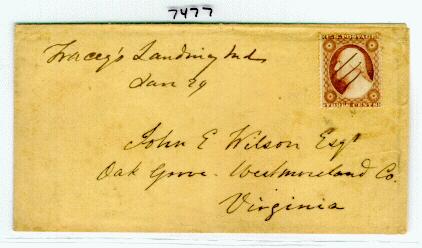 7477
U.S. POSTAGE
THREE CENTS
Tracey's Landing Md
Jan 29
John E Wilson Esqr
Oak Grove. Westmoreland Co.
Virginia